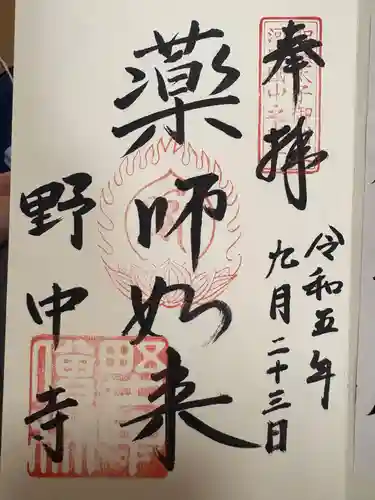 奉拝
令和五年
九月二十三日
薬師如来
野中寺